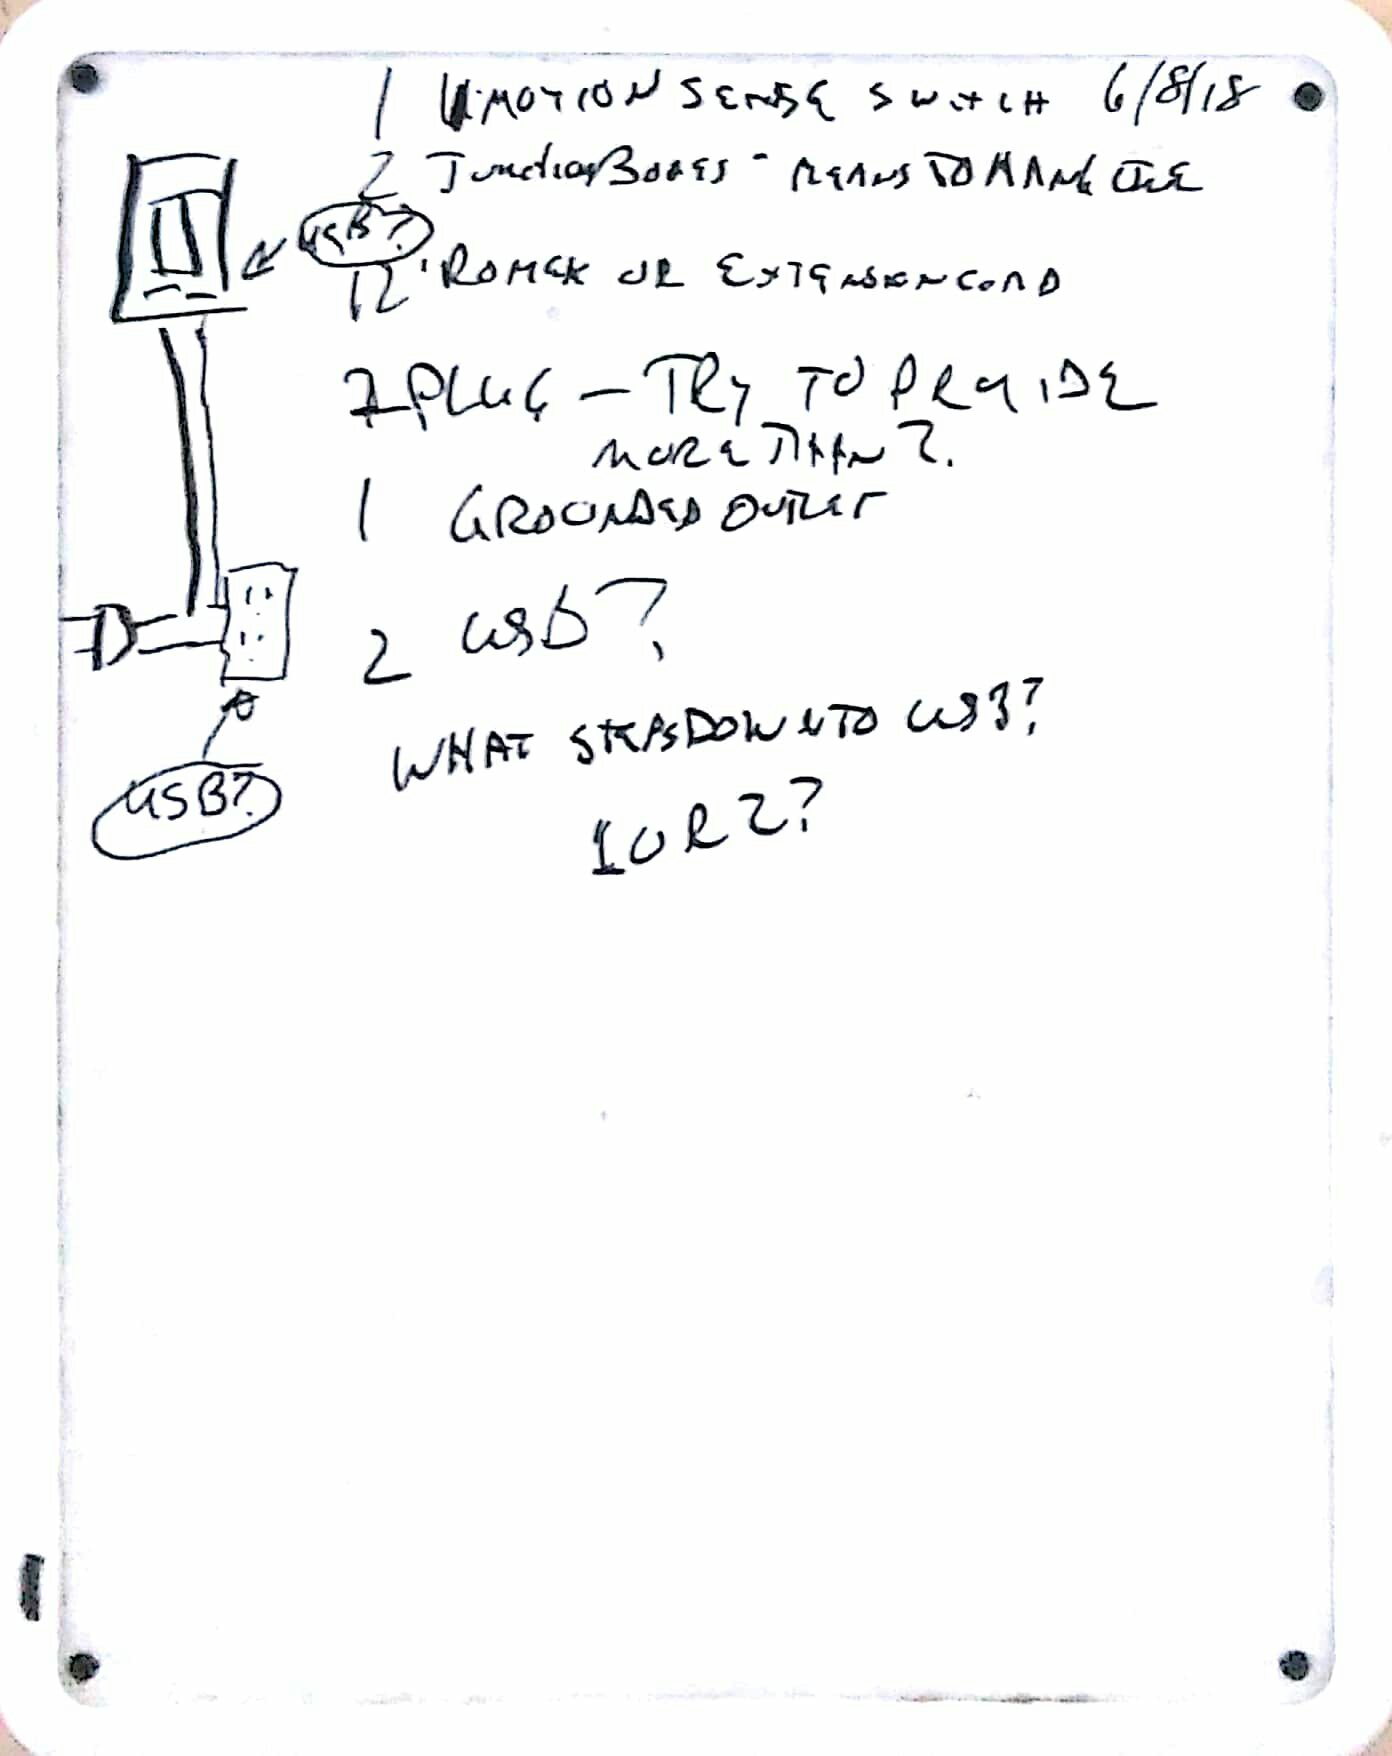 1 MOTION SENSE SWITCH 6/8/18
2 Junction Boxes - MEANS TO HANG ONE
USB?
12' ROMEX OR EXTENSION CORD
PLUG - TRY TO PROVIDE
MORE THAN 2.
1 GROUNDED OUTLET
2 USB?
WHAT STEPS DOWN TO USB?
1 OR 2?
USB?